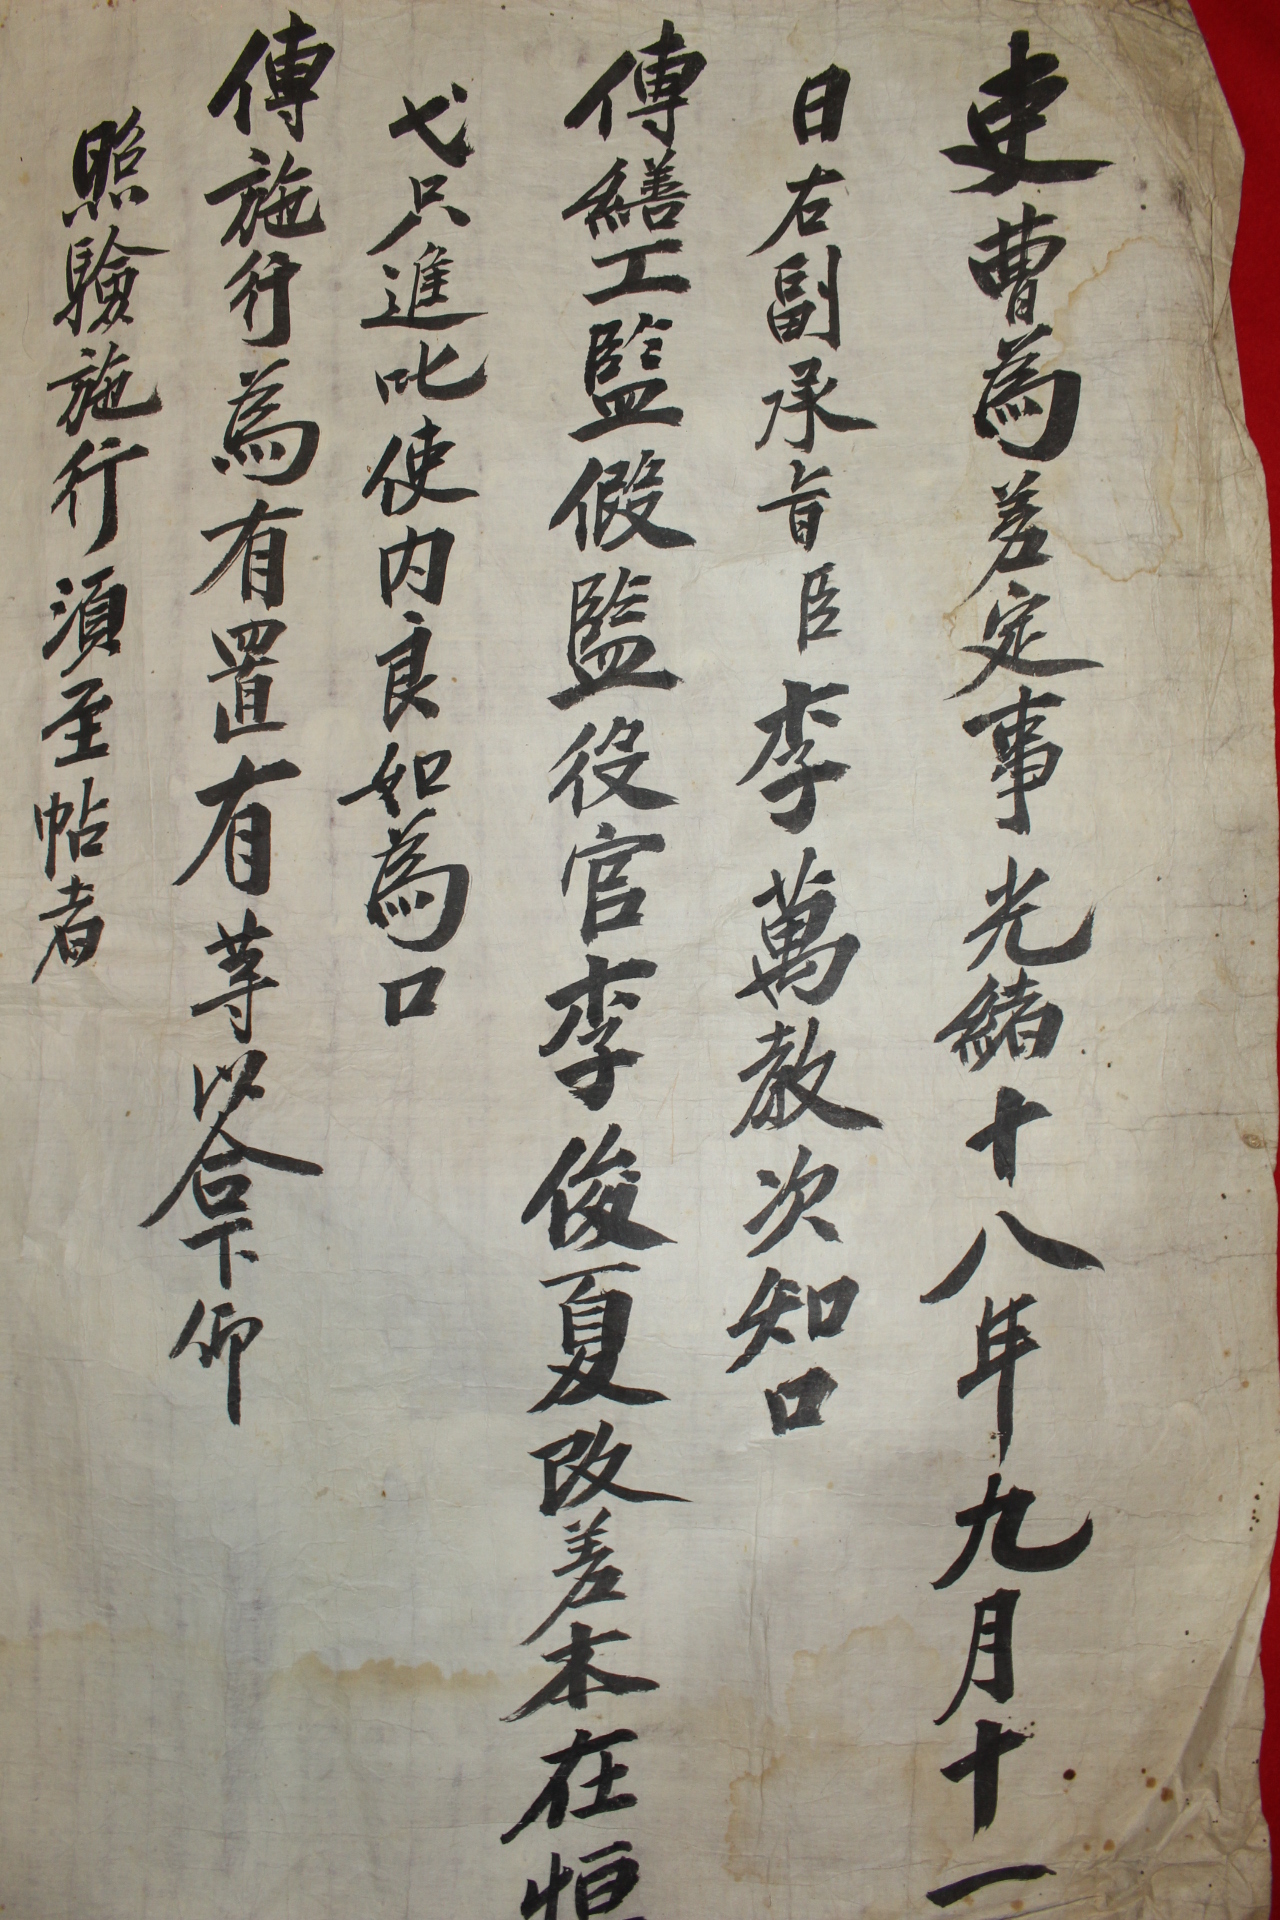 吏曹為差定事光緒十八年九月十一
日右副承旨臣李萬敎次知口
傳繕工監假監役官李俊夏改差本在恒
弋只進叱使内良如為口
傳施行為有置有等以合下仰
照驗施行須至帖者